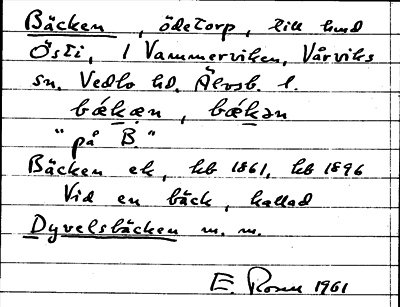 Bäcken, ödetorp, till hmd
Östi, 1 Vammerviken, Vårviks
sn. Vedbo hd, Älvsb. l.
bǽkæn, bǽkən
"på B."
Bäcken ek, hb 1861, hb 1896
Vid en bäck, kallad
Dyvelsbäcken m. m.
E. Rosen 1961